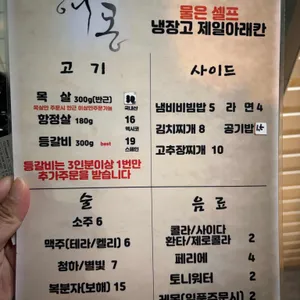 물은 셀프
냉장고 제일아래칸
고 기
목 살 300g(반근)
목살만 주문시 반근 이상만주문가능
국내산
항정살 180g 16
멕시코
등갈비 300g best 19
스페인
등갈비는 3인분이상 1번만
추가주문을 받습니다
사이드
냄비비빔밥 5 라 면 4
김치찌개 8 공기밥 1.5
고추장찌개 10
술
소주 6
맥주(테라/켈리) 6
청하/별빛 7
복분자(보해) 15
음 료
콜라/사이다
환타/제로콜라 2
페리에 4
토니워터 2